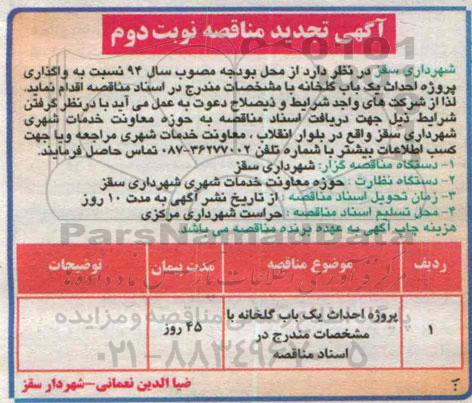 آگهی تجدید مناقصه نوبت دوم
شهرداری سقز در نظر دارد از محل بودجه مصوب سال ۹۴ نسبت به واگذاری
پروژه احداث یک باب گلخانه با مشخصات مندرج در اسناد مناقصه اقدام نماید.
لذا از شرکت های واجد شرایط و ذیصلاح دعوت به عمل می آید با درنظر گرفتن
شرایط ذیل جهت دریافت اسناد مناقصه به حوزه معاونت خدمات شهری
شهرداری سقز واقع در بلوار انقلاب ، معاونت خدمات شهری مراجعه ویا جهت
کسب اطلاعات بیشتر با شماره تلفن ۳۶۲۷۷۰۰۲-۰۸۷ تماس حاصل فرمایند.
۱- دستگاه مناقصه گزار: شهرداری سقز
۲- دستگاه نظارت : حوزه معاونت خدمات شهری شهرداری سقز
۳- زمان تحویل اسناد مناقصه : از تاریخ نشر آگهی به مدت ۱۰ روز
۴- محل تسلیم اسناد مناقصه : حراست شهرداری مرکزی
هزینه چاپ آگهی به عهده برنده مناقصه می باشد
ParsNamadData
ردیف موضوع مناقصه مدت پیمان توضیحات
۱ پروژه احداث یک باب گلخانه با مشخصات مندرج در اسناد مناقصه ۴۵ روز
ضیا الدین نعمانی-شهردار سقز